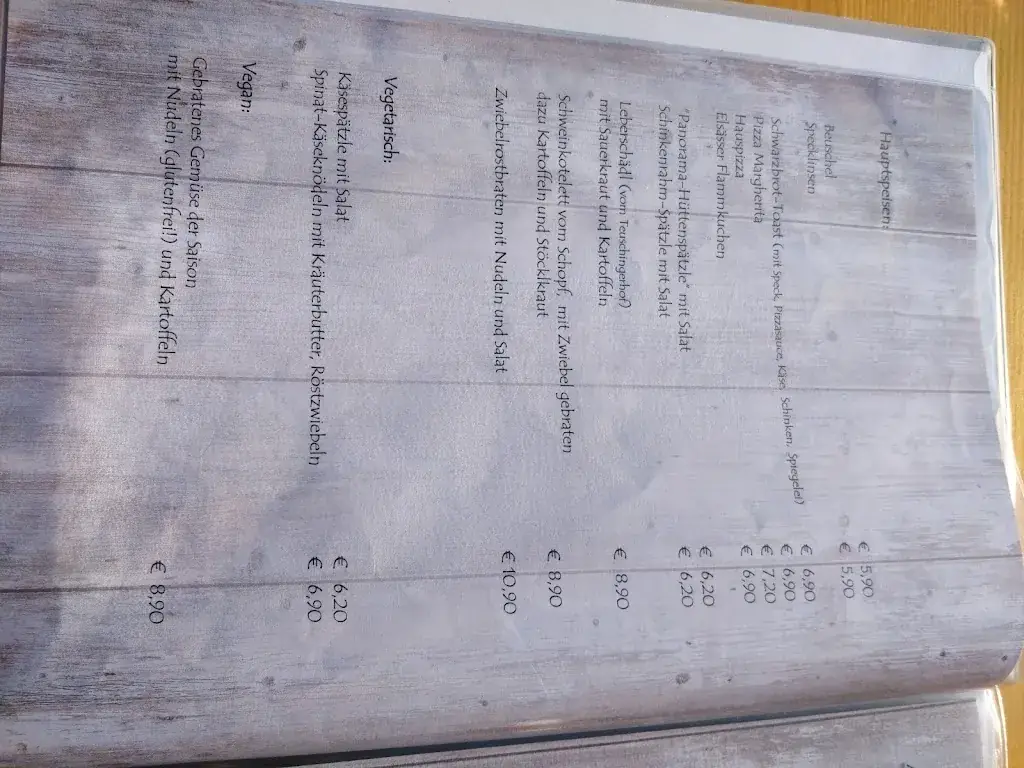 Hauptspeisen:
Beuschel € 5,90
Specklinsen € 5,90
Schwarzbrot-Toast (mit Speck, Pizzasauce, Käse, Schinken, Spiegelei) € 6,90
Pizza Margherita € 6,90
Hauspizza € 7,20
Elsässer Flammkuchen € 6,90
"Panorama-Hüttenspätzle" mit Salat € 6,20
Schinkenrahm-Spätzle mit Salat € 6,20
Leberschädl (vom Teuschingerhof)
mit Sauerkraut und Kartoffeln € 8,90
Schweinkotelett vom Schopf, mit Zwiebel gebraten
dazu Kartoffeln und Stöcklkraut € 8,90
Zwiebelrostbraten mit Nudeln und Salat € 10,90
Vegetarisch:
Käsespätzle mit Salat € 6,20
Spinat-Käseknödeln mit Kräuterbutter, Röstzwiebeln € 6,90
Vegan:
Gebratenes Gemüse der Saison
mit Nudeln (glutenfrei!) und Kartoffeln € 8,90